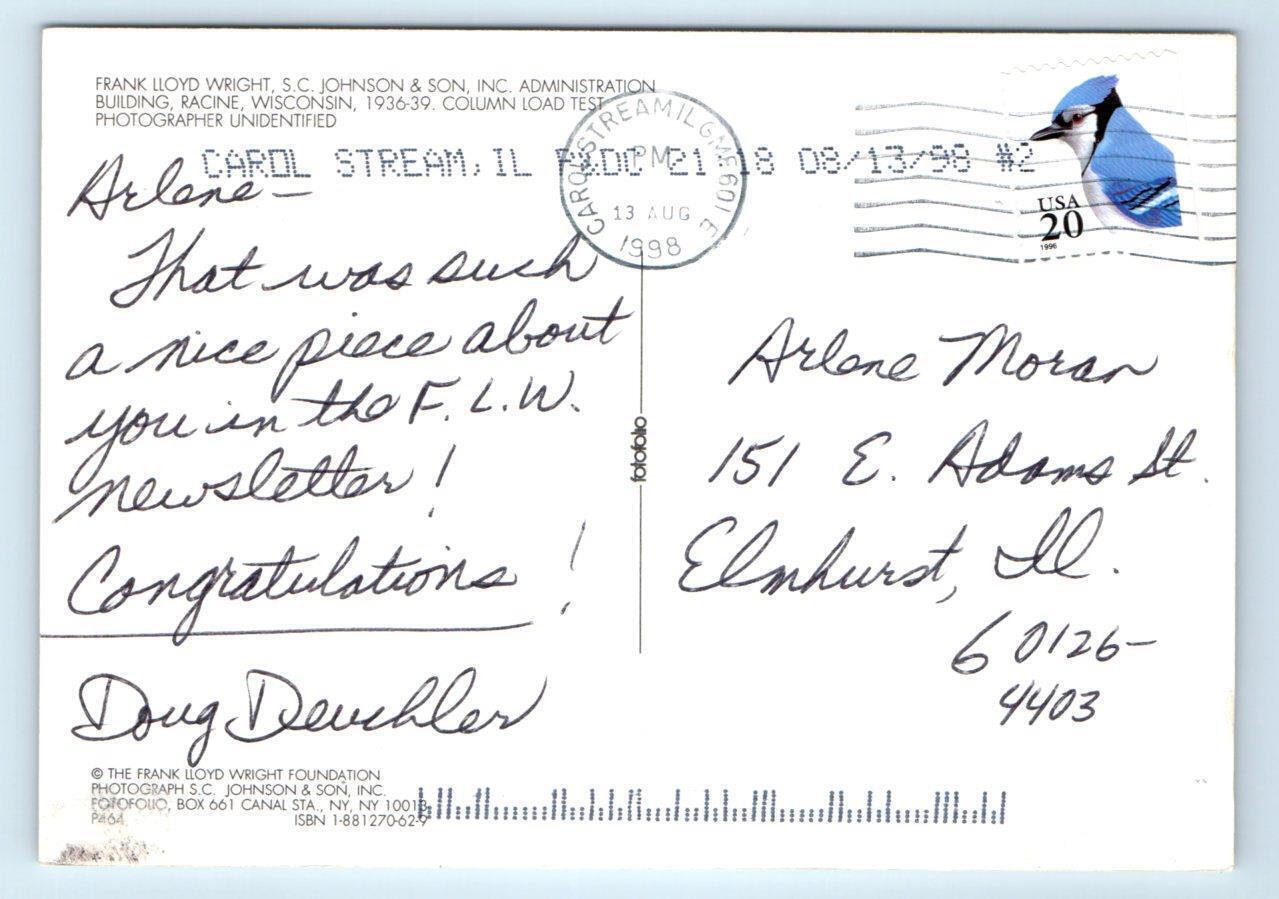 FRANK LLOYD WRIGHT, S.C. JOHNSON & SON, INC. ADMINISTRATION
BUILDING, RACINE, WISCONSIN, 1936-39. COLUMN LOAD TEST
PHOTOGRAPHER UNIDENTIFIED
CAROL STREAM, IL P&DC 21 18 08/13/98 #2
CAROL STREAM IL GMF 601
PM
13 AUG
1998
USA
20
1996
Arlene –
That was such
a nice piece about
you in the F.L.W.
newsletter!
Congratulations!
Doug Deuchler
fotofolio
Arlene Moran
151 E. Adams St.
Elmhurst, Il.
60126–
4403
© THE FRANK LLOYD WRIGHT FOUNDATION
PHOTOGRAPH S.C. JOHNSON & SON, INC.
FOTOFOLIO, BOX 661 CANAL STA., NY, NY 10013
P464 ISBN 1-881270-62-9